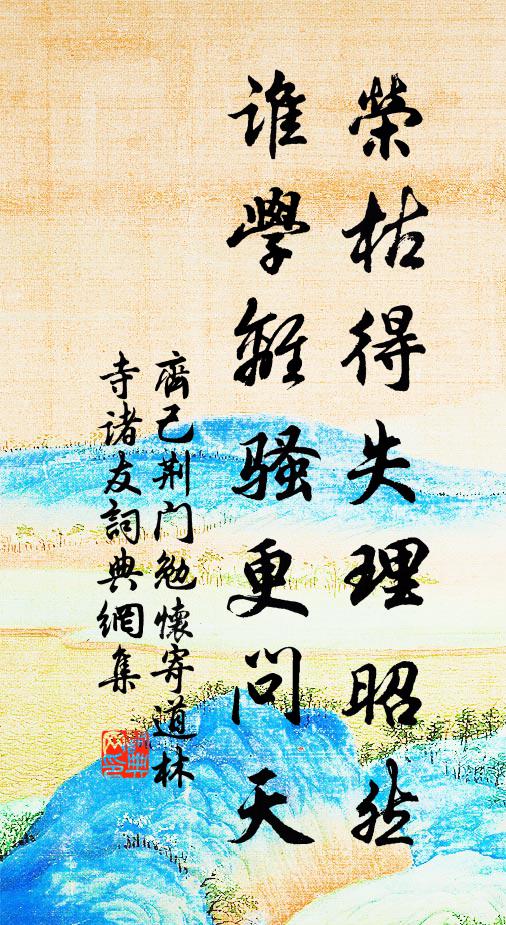 榮枯得失理昭然
誰學離騷更問天
齊己荆门勉懷寄道林
寺诸友詞典網集